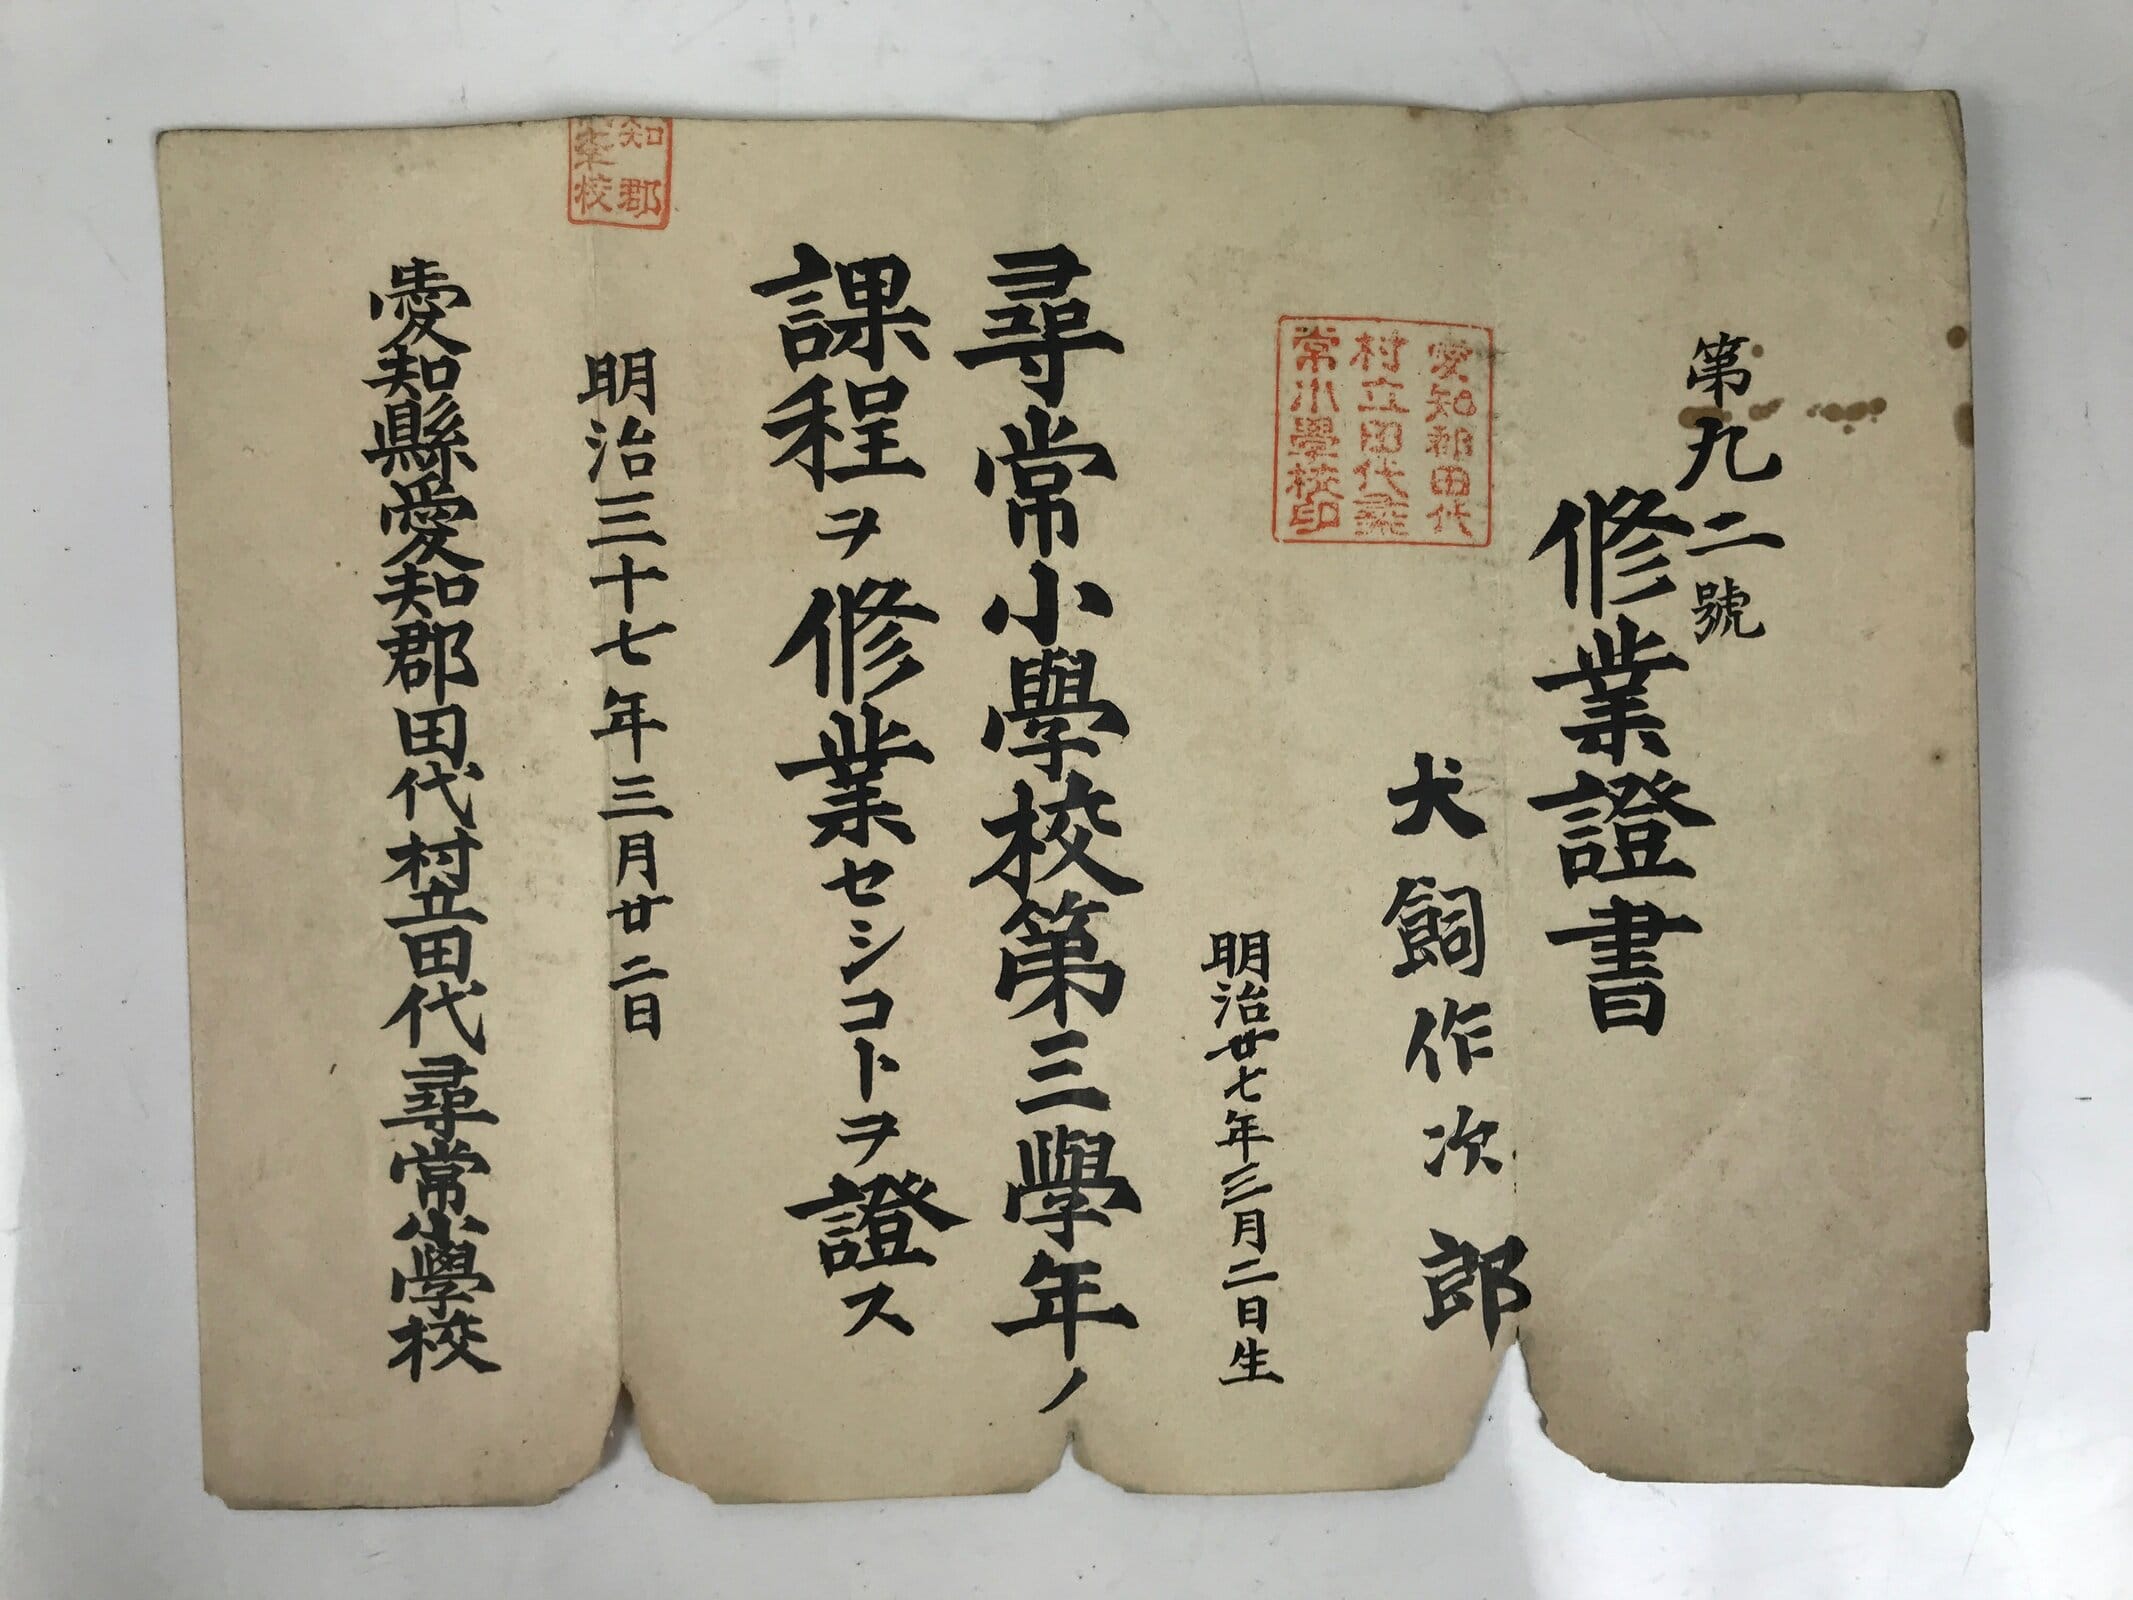 第九二號
修業證書
犬飼作次郎
明治廿七年三月二日生
愛知郡田代
村立田代尋
常小學校印
尋常小學校第三學年ノ
課程ヲ修業セシコトヲ證ス
明治三十七年三月廿二日
知郡
校
愛知縣愛知郡田代村立田代尋常小學校